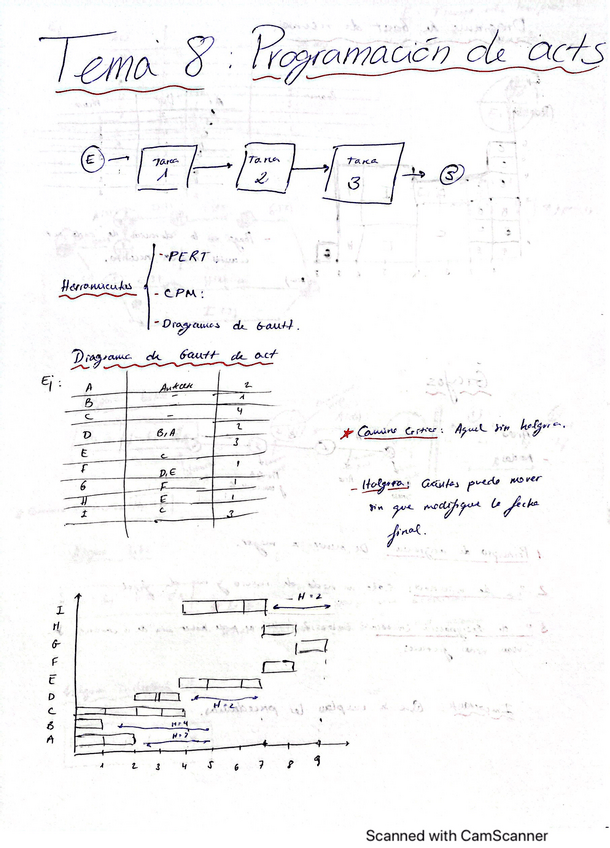 Tema 8 : Programación de acts
E
Tarea 1
Tarea 2
Tarea 3
S
Herramientas
- PERT
- CPM:
- Diagramas de Gantt.
Diagrama de Gantt de act
Ej:
A 2
B - 1
C - 4
D B,A 2
E C 3
F D,E 1
G F 1
H E 1
I C 3
* Camino Crítico: Aquel sin holgura.
- Holgura: Cuántas puede mover
sin que modifique la fecha
final.
I H=2
H
G
F
E
D H=2
C
B H=4
A H=3
1 2 3 4 5 6 7 8 9
Scanned with CamScanner